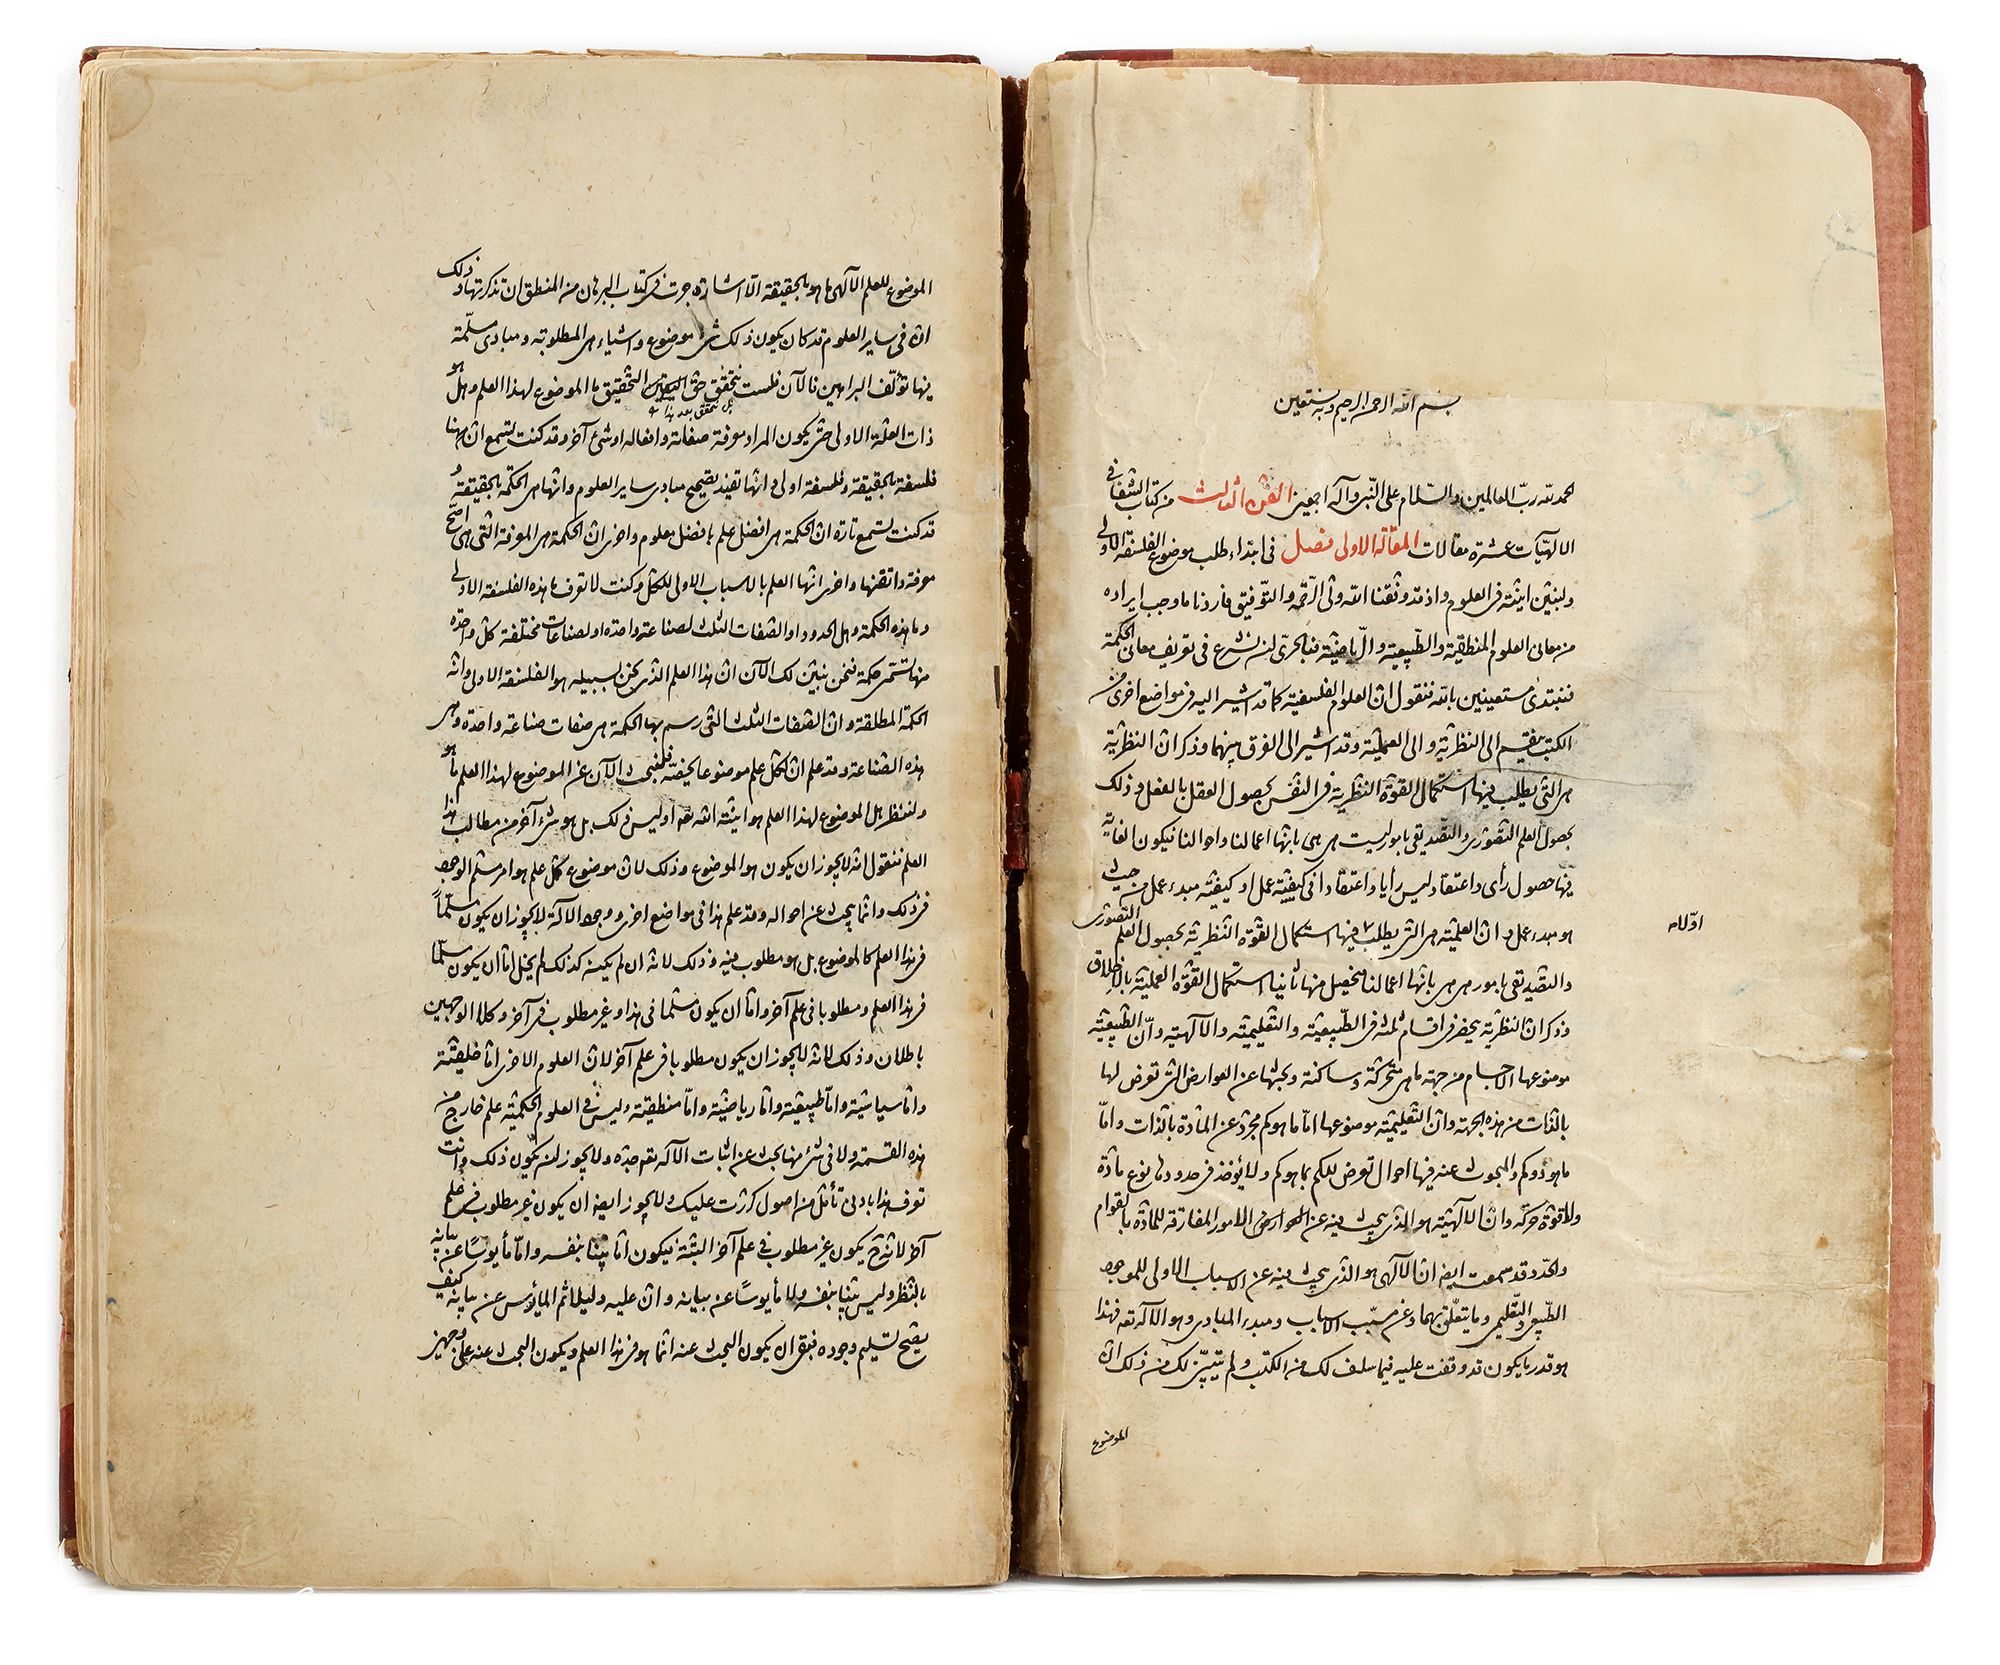 بسم الله الرحمن الرحيم وبه نستعين
الحمد لله رب العالمين والسلام على النبي وآله اجمعين الفن الثالث من كتاب الشفا في
الالهيات عشرة مقالات المقالة الاولى فصل في ابتداء طلب موضوع الفلسفة الاولى
وليتبين انيته في العلوم واذ قد وفقنا الله ولى الرحمة والتوفيق فاوردنا ما وجب ايراده
من معانى العلوم المنطقية والطبيعية والرياضية فبالحرى ان نشرع في تعريف معانى الحكمة
فنبتدئ مستعينين بالله فنقول ان العلوم الفلسفية كما قد اشير اليه في مواضع اخرى من
الكتب ينقسم الى النظرية والى العملية وقد اشير الى الفرق بينهما وذكر ان النظرية
هى التى يطلب فيها استكمال القوة النظرية فى النفس بحصول العقل بالفعل وذلك
بحصول العلم التصورى والتصديقى بامور ليست هى هى بانها اعمالنا واحوالنا فيكون الغاية
فيها حصول رأى واعتقاد ليس رأيا واعتقادا فى كيفية عمل او كيفية مبدء عمل من حيث
هو مبدء عمل وان العملية هى التى يطلب فيها استكمال القوة النظرية بحصول العلم التصورى
اولا
والتصديقى بامور هى هى بانها اعمالنا ليحصل منها ثانيا استكمال القوة العملية بالاخلاق
وذكر ان النظرية ينحصر فى اقسام ثلثة فى الطبيعية والتعليمية والالهية وان الطبيعية
موضوعها الاجسام من جهة ما هى متحركة وساكنة وبحثها عن العوارض التى تعرض لها
بالذات من هذه الجهة وان التعليمية موضوعها اما ما هو كم مجرد عن المادة بالذات واما
ما هو ذو كم والمبحوث عنه فيها احوال تعرض للكم بما هو كم ولا يؤخذ فى حدودها نوع مادة
ولا قوة حركة وان الالهية هو الذى يبحث فيه عن الامور المفارقة للمادة بالقوام
والحد وقد سمعت ايضا ان الالهى هو الذى يبحث فيه عن الاسباب الاولى للموجود
الطبيعى والتعليمى وما يتعلق بهما وعن مسبب الاسباب ومبدء المبادى وهو الاله تعه فهذا
هو قدر ما يكون قد وقفت عليه فيما سلف لك من الكتب ولم يتبين لك من ذلك ان
الموضوع
الموضوع للعلم الالهى ما هو بالحقيقة الا اشارة جرت فى كتاب البرهان من المنطق ان تذكرتها وذلك
ان فى ساير العلوم قد كان يكون ذلك شئ موضوع واشياء هى المطلوبة ومبادى مسلمة
فيها تؤلف البراهين فالآن فلست تحقق حق التحقيق ما الموضوع لهذا العلم وهل هو
ذات العلة الاولى حتى يكون المراد معرفة صفاته وافعاله او شئ آخر وقد كنت تسمع ان هنا
فلسفة بالحقيقة وفلسفة اولى وانها تفيد تصحيح مبادى ساير العلوم وانها هى الحكمة بالحقيقة
قد كنت تسمع تارة ان الحكمة هى افضل علم بافضل معلوم واخرى ان الحكمة هى المعرفة التى هى اصح
معرفة واتقنها واخرى انها العلم بالاسباب الاولى للكل وكنت لا تعرف ما هذه الفلسفة الاولى
وما هذه الحكمة وهل الحدود او الصفات الثلث لصناعة واحدة او لصناعات مختلفة كل واحدة
منها تسمى حكمة فنحن نبين لك الآن ان هذا العلم الذى نحن بسبيله هو الفلسفة الاولى وانه
الحكمة المطلقة وان الصفات الثلث التى رسم بها الحكمة هى صفات صناعة واحدة وهى
هذه الصناعة وقد علم ان لكل علم موضوعا يخصه فلنبحث الآن عن الموضوع لهذا العلم ما هو
ولننظر هل الموضوع لهذا العلم هو انية الله تعه او ليس ذلك بل هو شئ آخر من مطالب هذا
العلم فنقول انه لا يجوز ان يكون هو الموضوع وذلك لان موضوع كل علم هو امر مسلم الوجود
فى ذلك وانما يبحث عن احواله وقد علم هذا فى مواضع اخرى ووجود الاله لا يجوز ان يكون مسلما
فى هذا العلم كالموضوع بل هو مطلوب فيه وذلك لانه ان لم يكن كذلك لم يخل اما ان يكون مسلما
فى هذا العلم ومطلوبا فى علم آخر واما ان يكون مسلما فى هذا وغير مطلوب فى آخر وكلا الوجهين
باطلان وذلك لانه لا يجوز ان يكون مطلوبا فى علم آخر لان العلوم الاخرى اما خلقية
واما سياسية واما طبيعية واما رياضية واما منطقية وليس فى العلوم الحكمية علم خارج من
هذه القسمة ولا فى شئ منها يبحث عن اثبات الاله تعه جده ولا يجوز ان يكون ذلك وانت
تعرف هذا بادنى تأمل من اصول كررت عليك ولا يجوز ايضا ان يكون غير مطلوب فى علم
آخر لانه ح يكون غير مطلوب فى علم آخر البتة فيكون اما بينا بنفسه واما مأيوسا عن بيانه
بالنظر وليس بينا بنفسه ولا مأيوسا عن بيانه فان عليه دليلا ثم المأيوس عن بيانه كيف
يصح تسليم وجوده فبقى ان يكون البحث عنه انما هو فى هذا العلم ويكون البحث عنه على وجهين